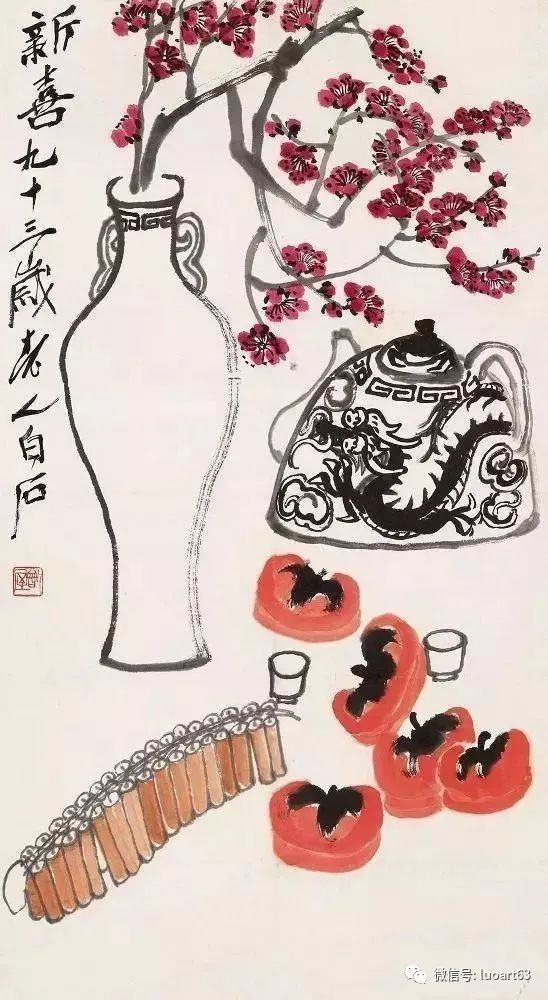 新喜九十三岁老人白石
微信号: luoart63